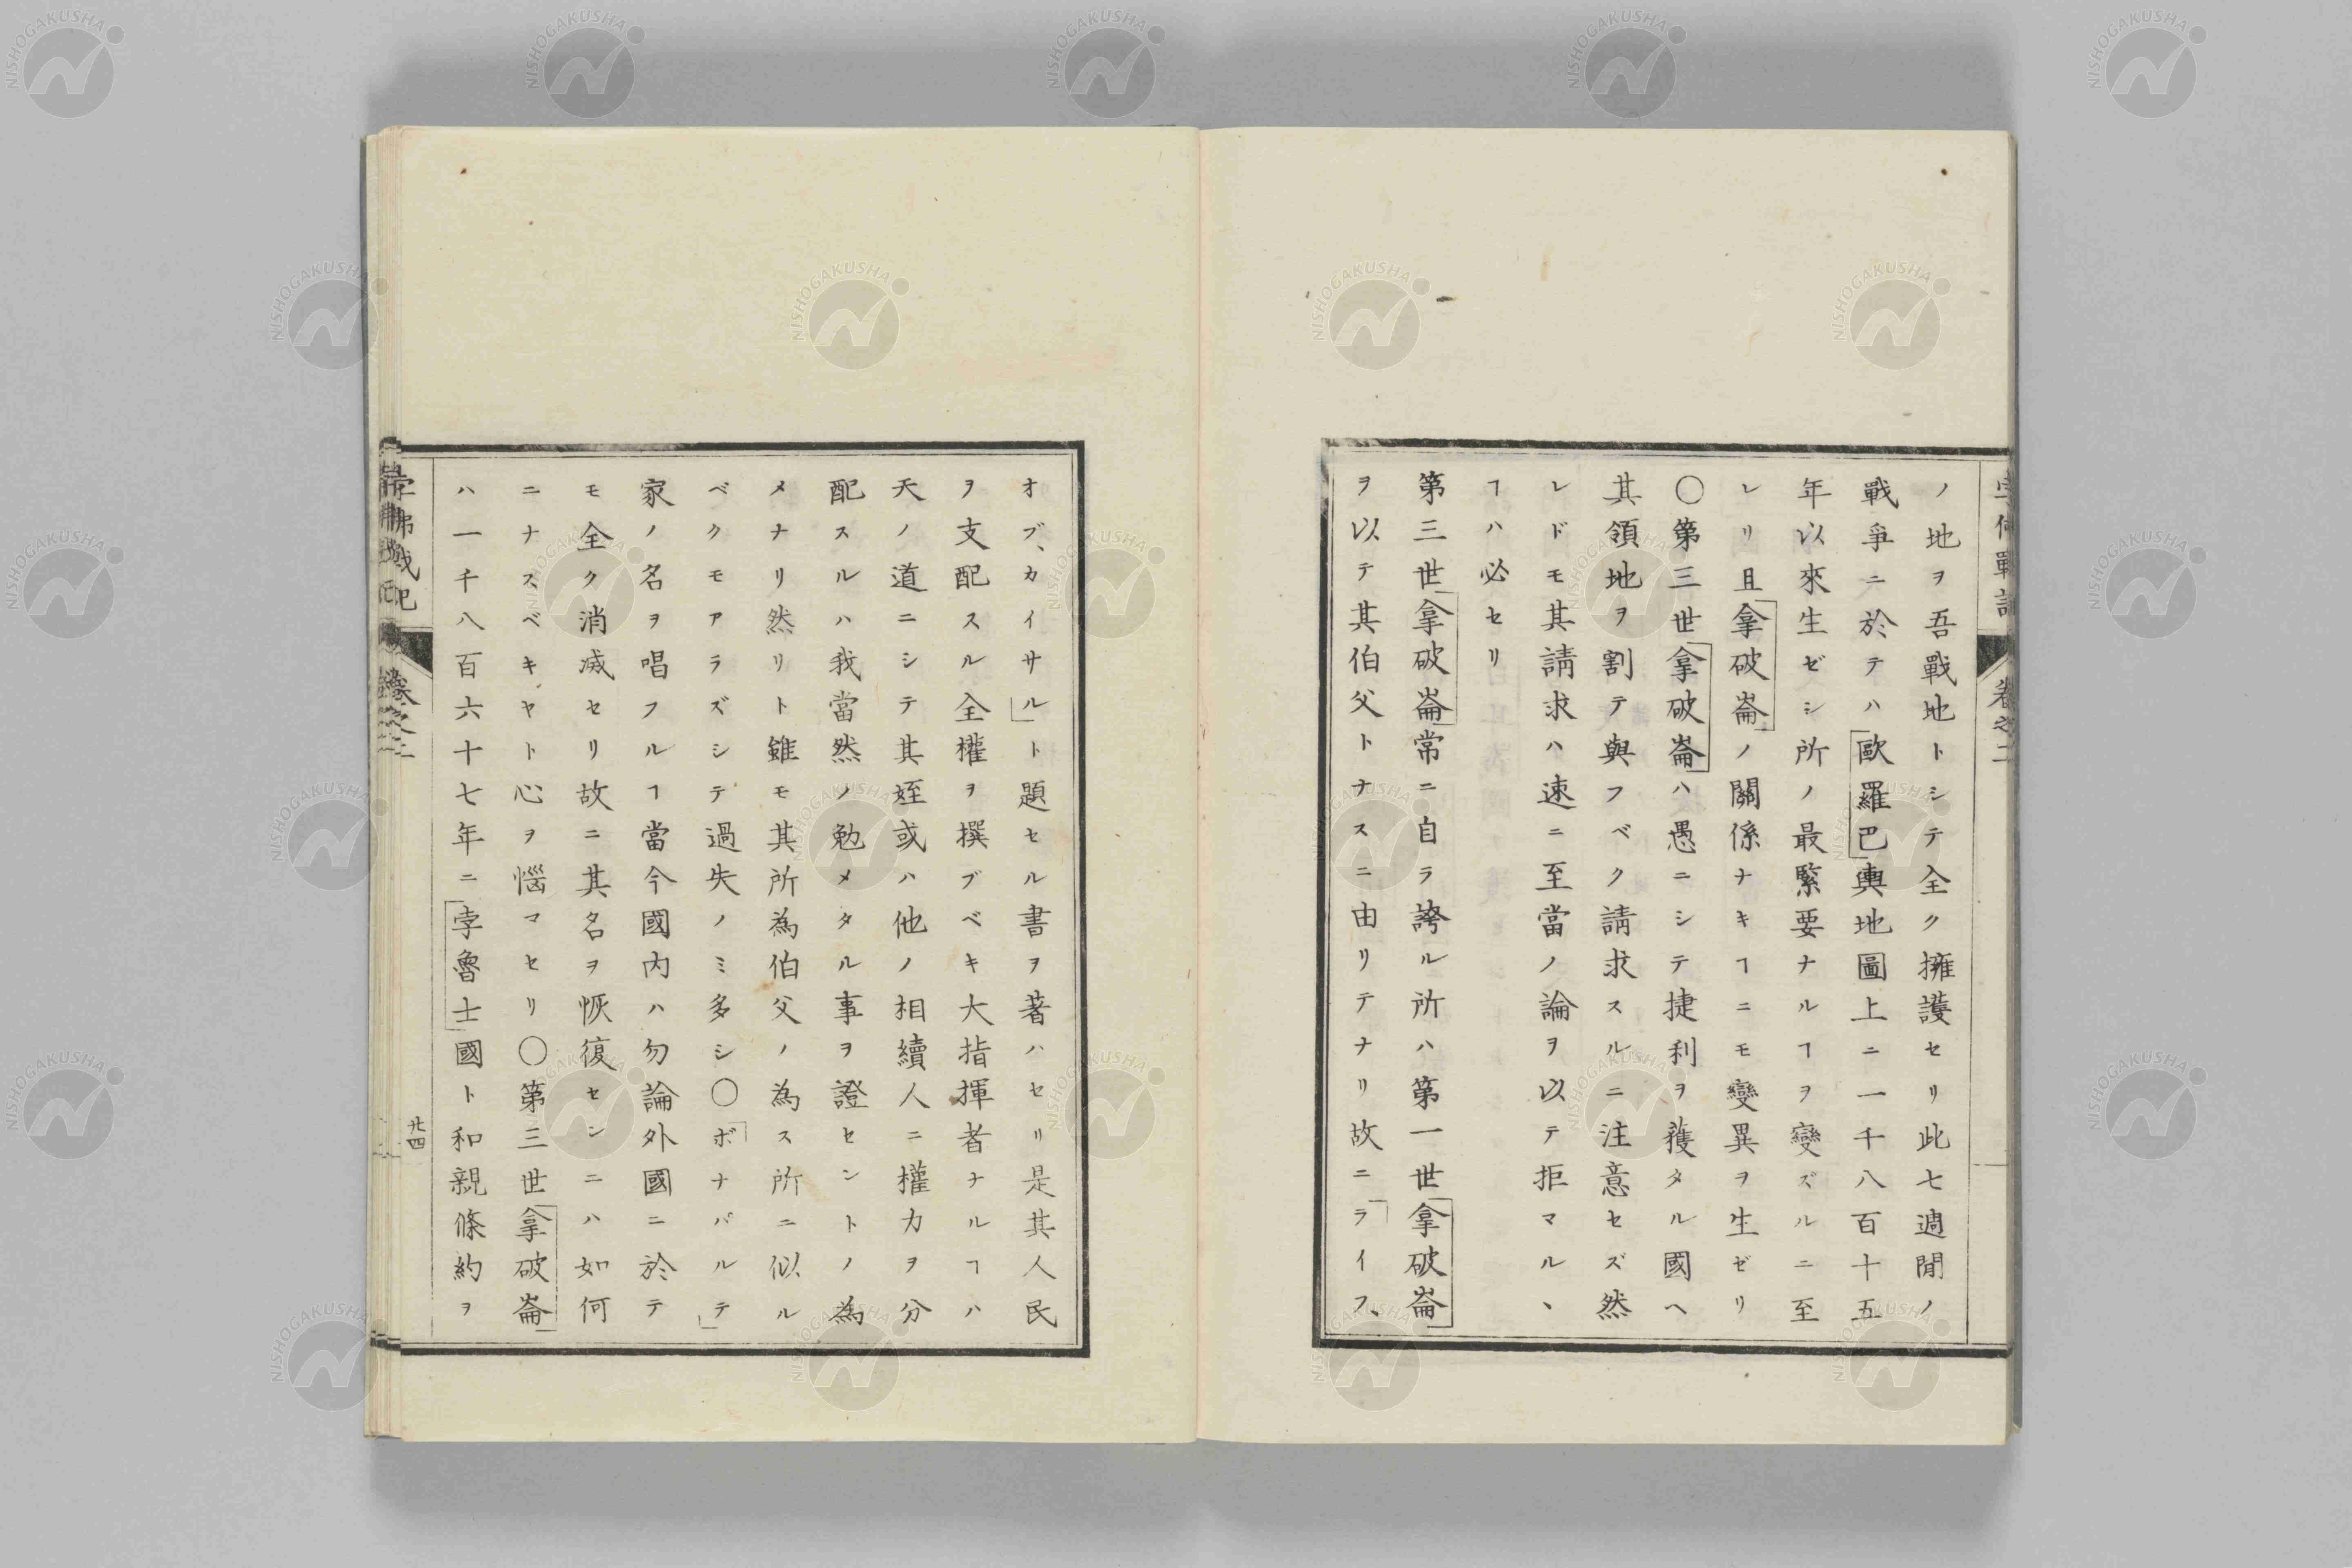 ノ地ヲ吾戰地トシテ全ク擁護セリ此七週間ノ
戰爭ニ於テハ歐羅巴輿地圖上ニ一千八百十五
年以來生ゼシ所ノ最緊要ナルヿヲ變ズルニ至
レリ且拿破崙ノ關係ナキヿニモ變異ヲ生ゼリ
〇第三世拿破崙ハ愚ニシテ捷利ヲ獲タル國ヘ
其領地ヲ割テ與フベク請求スルニ注意セズ然
レドモ其請求ハ速ニ至當ノ論ヲ以テ拒マル丶
ヿハ必セリ
第三世拿破崙常ニ自ラ誇ル所ハ第一世拿破崙
ヲ以テ其伯父トナスニ由リテナリ故ニ「ライフ、
オブ、カイサル」ト題セル書ヲ著ハセリ是其人民
ヲ支配スル全權ヲ撰ブベキ大指揮者ナルヿハ
天ノ道ニシテ其姪或ハ他ノ相續人ニ權力ヲ分
配スルハ我當然ノ勉メタル事ヲ證セントノ為
メナリ然リト雖モ其所為伯父ノ為ス所ニ似ル
ベクモアラズシテ過失ノミ多シ〇「ボナパルテ」
家ノ名ヲ唱フルヿ當今國内ハ勿論外國ニ於テ
モ全ク消滅セリ故ニ其名ヲ恢復センニハ如何
ニナスベキヤト心ヲ惱マセリ〇第三世拿破崙
ハ一千八百六十七年ニ孛魯士國ト和親條約ヲ
卷之二
廿四
NISHOGAKUSHA